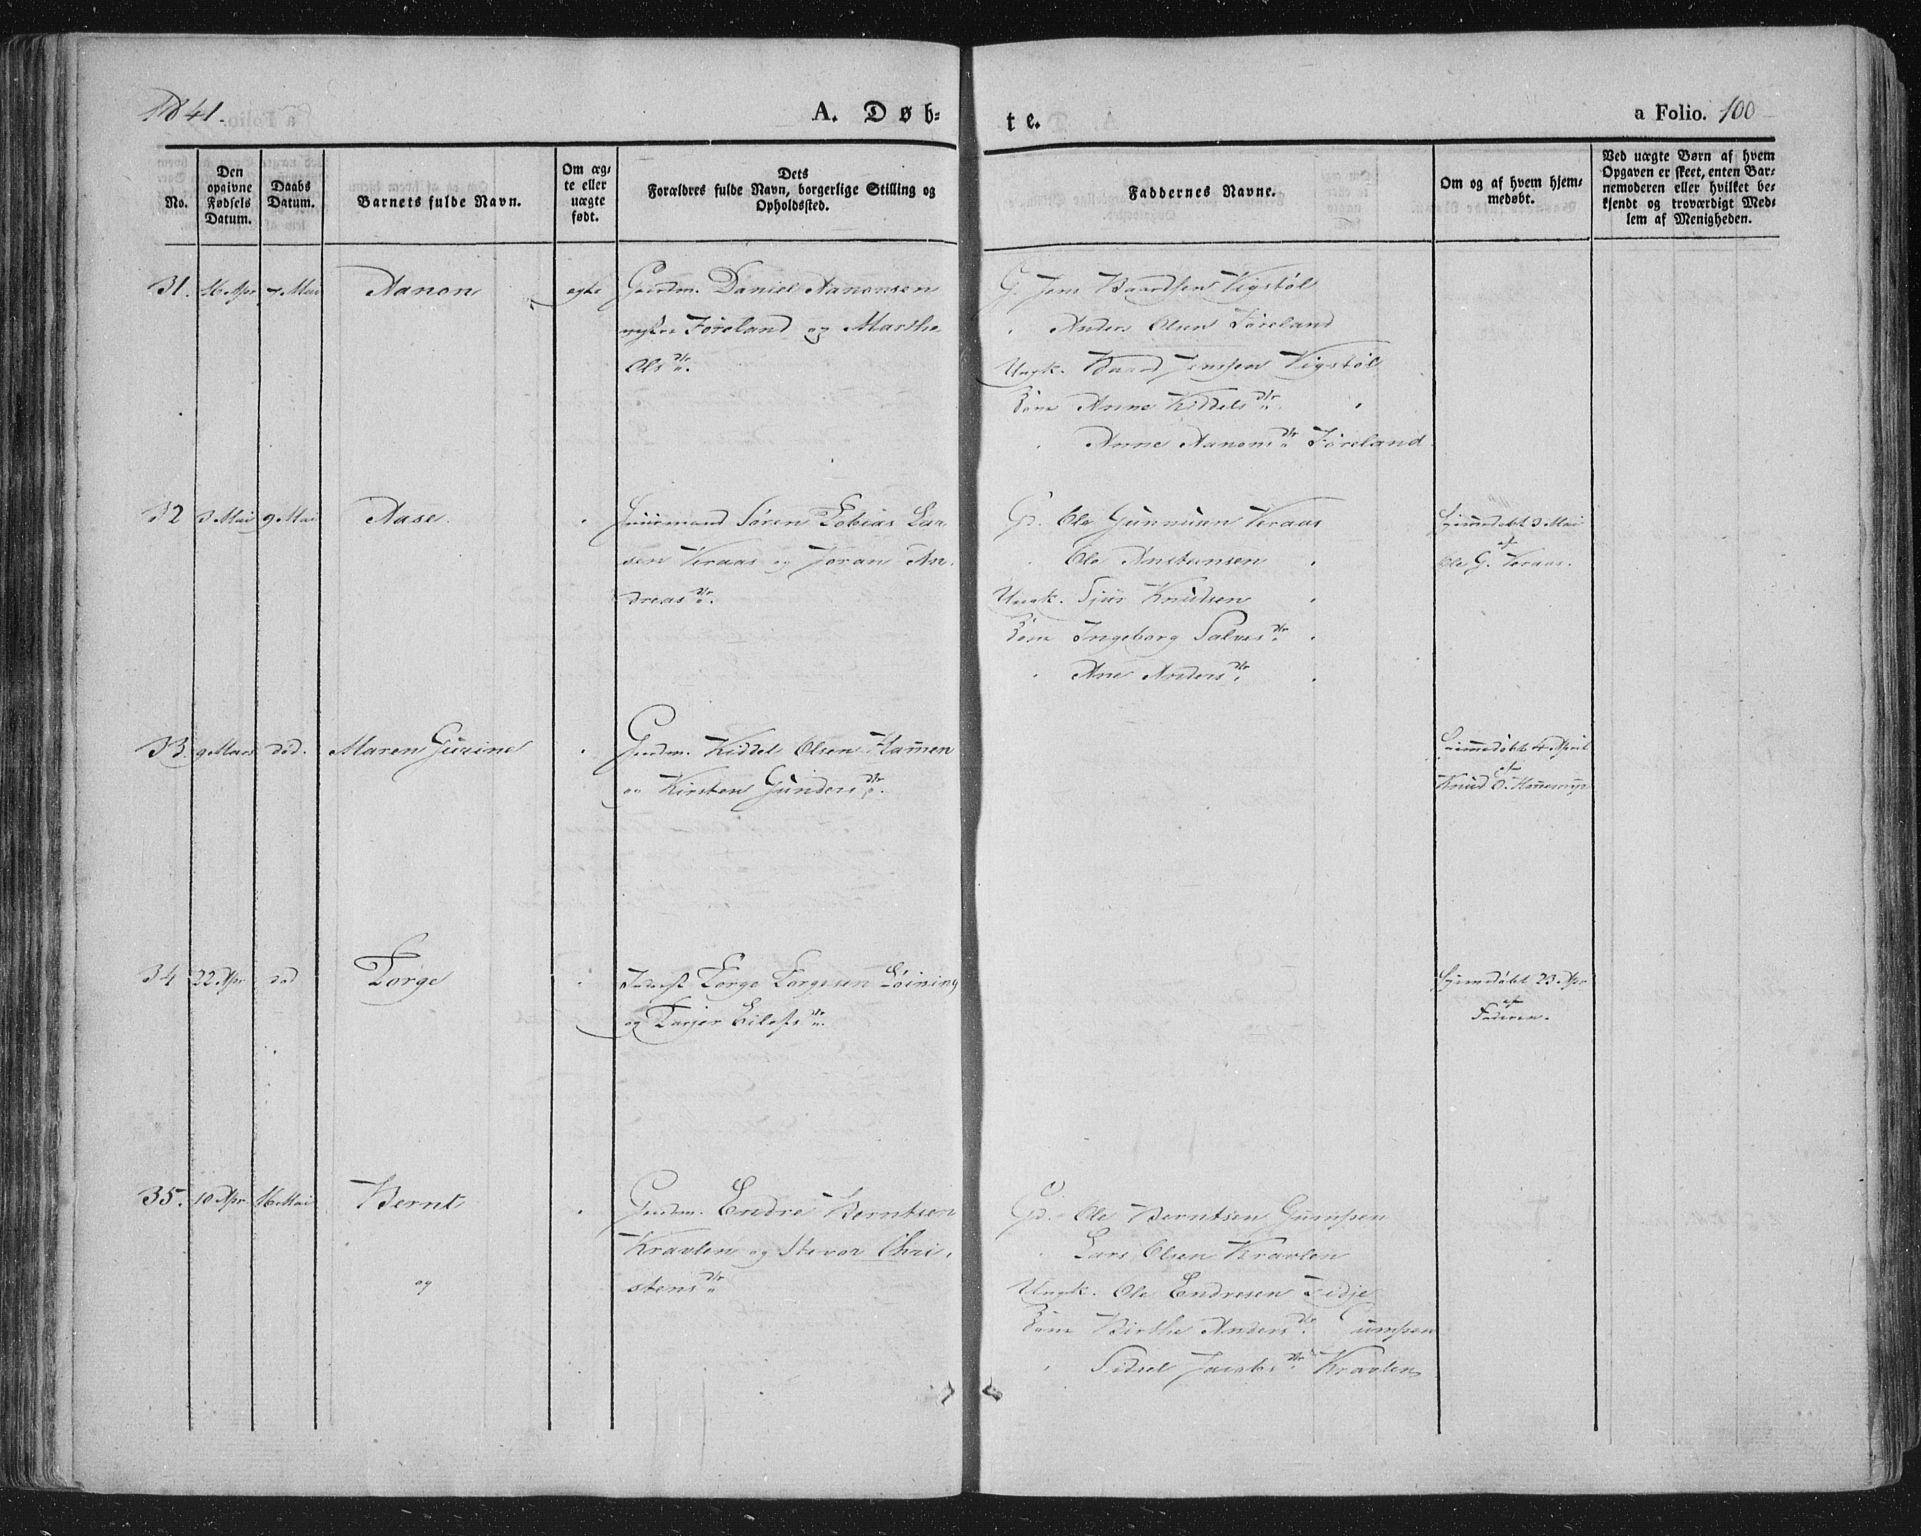 1841.
A. Døb-
te.
a Folio. 100
No.
Den
opgivne
Fødsels
Datum.
Daabs
Datum.
Barnets fulde Navn.
Om æg-
te eller
uægte
født.
Dets
Forældres fulde Navn, borgerlige Stilling og
Opholdssted.
Faddernes Navne.
Om og af hvem hjem-
medøbt.
Ved uægte Børn af hvem
Opgaven er skeet, enten Bar-
nemoderen eller hvilket be-
kjendt og troværdigt Med-
lem af Menigheden.
31. 16 Apr 7 Mai Aanon ægte Gaardm. Daniel Aanonsen
Føreland og Marthe
Ols dtr.
G. Jens Baardsen Vigstøl
" Anders Olsen Føreland
Ungk. Baard Jenssen Vigstøl
Kone Anne Kiddels dtr. "
" Anne Aanons dtr Føreland
32 3 Mai 9 Mai Aase. " Huusmand Søren Tobias Lar
sen Veraas og Joran An-
dreas dtr.
Gd. Ole Gunnusen Veraas
" Ole Anstensen "
Ungk. Sjur Knudsen "
Kone Ingeborg Salves dtr "
" Ane Anders dtr. "
Hjemmedøbt 3 Mai
af
Ole G. Veraas.
33. 9 Mars død. Maren Gurine " Gaardm. Kiddel Olsen Hannen
og Kirsten Gunders dtr.
Hjemmedøbt 4 April
af
Knud O.
34 22 Apr død Torge " Inderst Torge Torgesen
og Tarjer Eilefs dtr.
Hjemmedøbt 23. Apr
af
Faderen.
35. 10 Apr 16 Mai Bernt " Gaardm. Endre Berntsen
Kravlen og Chri-
stens dtr
og
Gd. Ole Berntsen Gumpen
" Lars Olsen Kravlen
Ungk. Ole Endresen
Kone Birthe Anders dtr. Gumpen
" Sidsel Jacobs dtr Kravlen